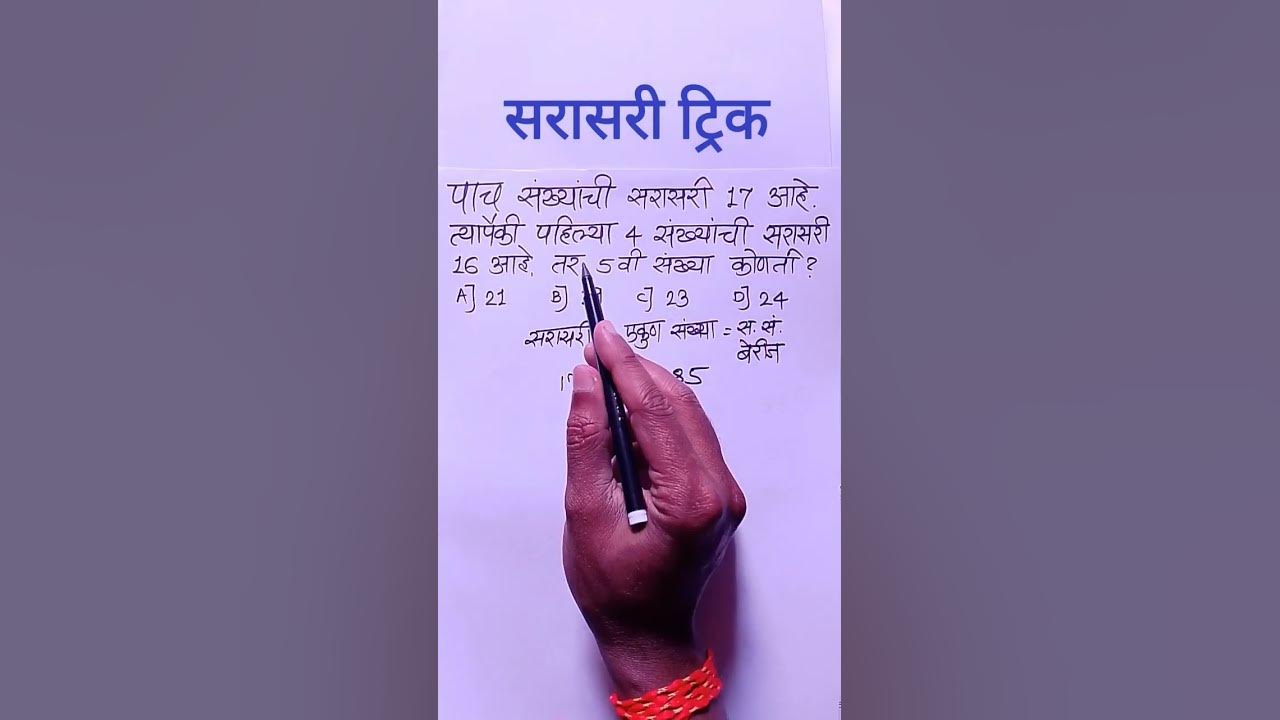 सरासरी ट्रिक
पाच संख्यांची सरासरी 17 आहे.
त्यापैकी पहिल्या 4 संख्यांची सरासरी
16 आहे. तर 5 वी संख्या कोणती?
A] 21 B] C] 23 D] 24
सरासरी एकुण संख्या = स. सं.
बेरीज
85